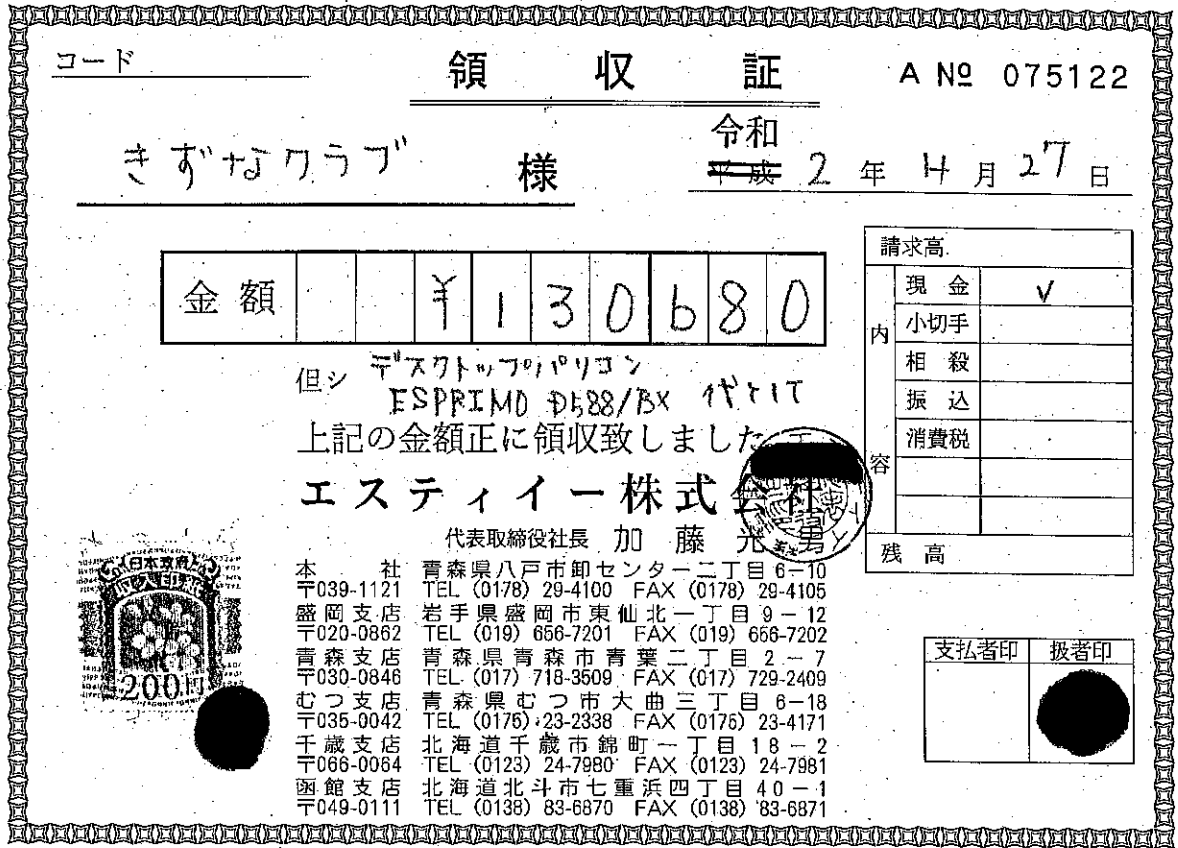 コード
領収証
A № 075122
きずなクラブ 様
令和
平成 2 年 4 月 27 日
金額 ¥130680
請求高
内容
現金 ✓
小切手
相殺
振込
消費税
残高
但シ デスクトップパソコン
ESPRIMO D588/BX 代として
上記の金額正に領収致しました
エスティイー株式会社
代表取締役社長 加藤光男
本社 青森県八戸市卸センター二丁目6-10
〒039-1121 TEL (0178) 29-4100 FAX (0178) 29-4105
盛岡支店 岩手県盛岡市東仙北一丁目9-12
〒020-0862 TEL (019) 656-7201 FAX (019) 656-7202
青森支店 青森県青森市青葉二丁目2-7
〒030-0846 TEL (017) 718-3509 FAX (017) 729-2409
むつ支店 青森県むつ市大曲三丁目6-18
〒035-0042 TEL (0175) 23-2338 FAX (0175) 23-4171
千歳支店 北海道千歳市錦町一丁目18-2
〒066-0064 TEL (0123) 24-7980 FAX (0123) 24-7981
函館支店 北海道北斗市七重浜四丁目40-1
〒049-0111 TEL (0138) 83-6870 FAX (0138) 83-6871
日本政府
収入印紙
200円
支払者印 扱者印